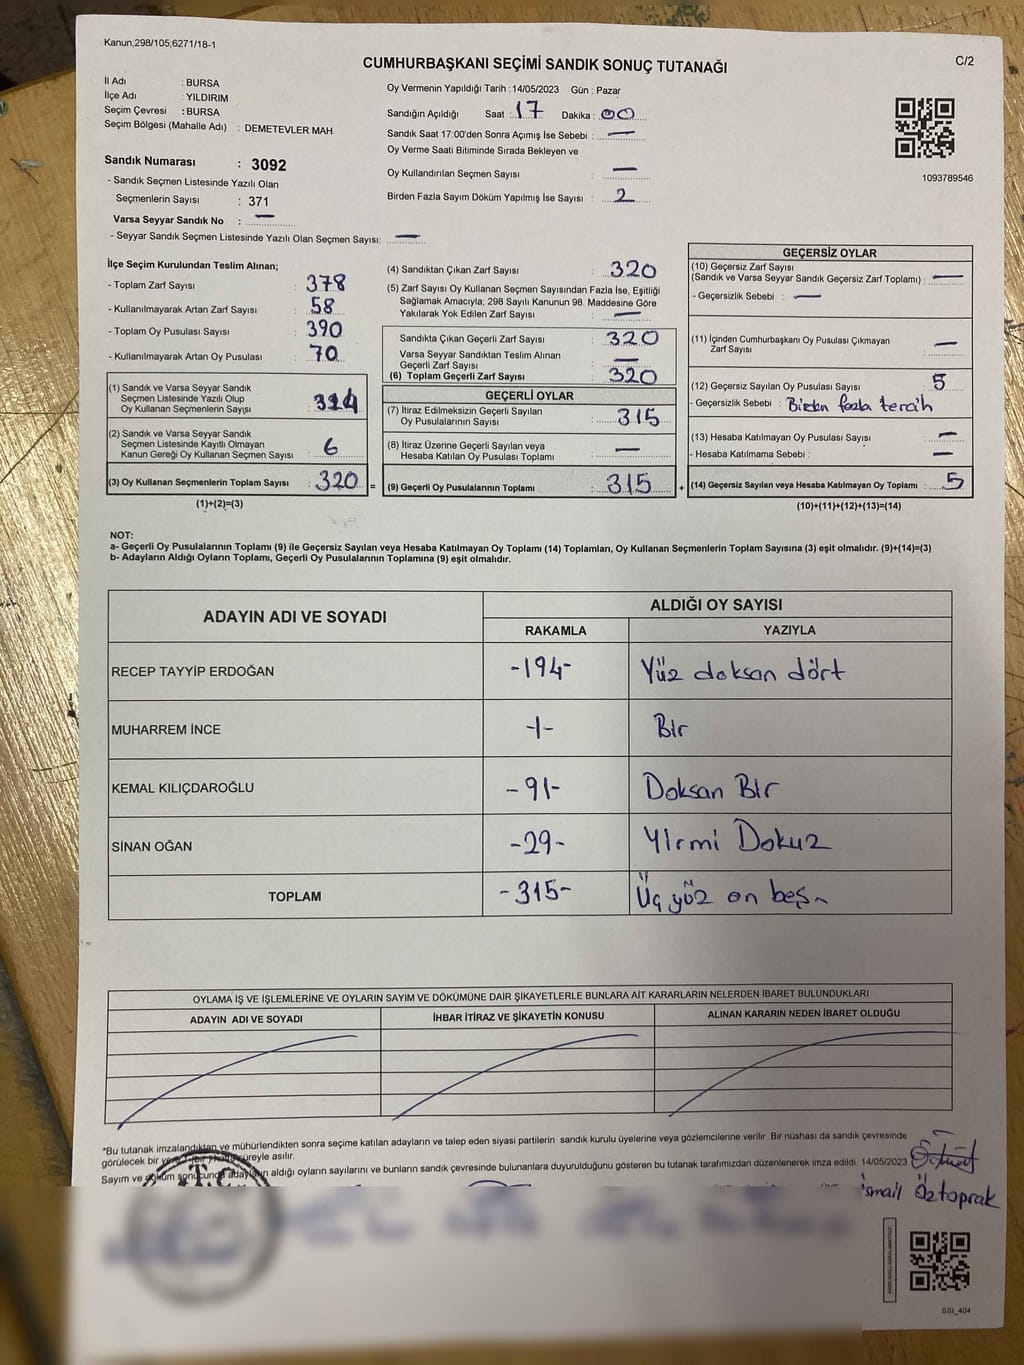 Kanun;298/105;6271/18-1
C/2
CUMHURBAŞKANI SEÇİMİ SANDIK SONUÇ TUTANAĞI
İl Adı : BURSA
İlçe Adı : YILDIRIM
Seçim Çevresi : BURSA
Seçim Bölgesi (Mahalle Adı) : DEMETEVLER MAH.
Sandık Numarası : 3092
- Sandık Seçmen Listesinde Yazılı Olan
Seçmenlerin Sayısı : 371
Varsa Seyyar Sandık No : —
- Seyyar Sandık Seçmen Listesinde Yazılı Olan Seçmen Sayısı: —
Oy Vermenin Yapıldığı Tarih : 14/05/2023 Gün : Pazar
Sandığın Açıldığı Saat : 17 Dakika : 00
Sandık Saat 17:00'den Sonra Açımış İse Sebebi : —
Oy Verme Saati Bitiminde Sırada Bekleyen ve
Oy Kullandırılan Seçmen Sayısı : —
Birden Fazla Sayım Döküm Yapılmış İse Sayısı : 2
1093789546
İlçe Seçim Kurulundan Teslim Alınan;
- Toplam Zarf Sayısı : 378
- Kullanılmayarak Artan Zarf Sayısı : 58
- Toplam Oy Pusulası Sayısı : 390
- Kullanılmayarak Artan Oy Pusulası : 70
(1) Sandık ve Varsa Seyyar Sandık
Seçmen Listesinde Yazılı Olup
Oy Kullanan Seçmenlerin Sayısı : 314
(2) Sandık ve Varsa Seyyar Sandık
Seçmen Listesinde Kayıtlı Olmayan
Kanun Gereği Oy Kullanan Seçmen Sayısı : 6
(3) Oy Kullanan Seçmenlerin Toplam Sayısı : 320 =
(1)+(2)=(3)
(4) Sandıktan Çıkan Zarf Sayısı : 320
(5) Zarf Sayısı Oy Kullanan Seçmen Sayısından Fazla İse, Eşitliği
Sağlamak Amacıyla; 298 Sayılı Kanunun 98. Maddesine Göre
Yakılarak Yok Edilen Zarf Sayısı : —
Sandıkta Çıkan Geçerli Zarf Sayısı : 320
Varsa Seyyar Sandıktan Teslim Alınan
Geçerli Zarf Sayısı : —
(6) Toplam Geçerli Zarf Sayısı : 320
GEÇERLİ OYLAR
(7) İtiraz Edilmeksizin Geçerli Sayılan
Oy Pusulalarının Sayısı : 315
(8) İtiraz Üzerine Geçerli Sayılan veya
Hesaba Katılan Oy Pusulası Toplamı : —
(9) Geçerli Oy Pusulalarının Toplamı : 315 +
GEÇERSİZ OYLAR
(10) Geçersiz Zarf Sayısı
(Sandık ve Varsa Seyyar Sandık Geçersiz Zarf Toplamı) : —
- Geçersizlik Sebebi : —
(11) İçinden Cumhurbaşkanı Oy Pusulası Çıkmayan
Zarf Sayısı : —
(12) Geçersiz Sayılan Oy Pusulası Sayısı : 5
- Geçersizlik Sebebi : Birden fazla tercih
(13) Hesaba Katılmayan Oy Pusulası Sayısı : —
- Hesaba Katılmama Sebebi : —
(14) Geçersiz Sayılan veya Hesaba Katılmayan Oy Toplamı : 5
(10)+(11)+(12)+(13)=(14)
NOT:
a- Geçerli Oy Pusulalarının Toplamı (9) ile Geçersiz Sayılan veya Hesaba Katılmayan Oy Toplamı (14) Toplamları, Oy Kullanan Seçmenlerin Toplam Sayısına (3) eşit olmalıdır. (9)+(14)=(3)
b- Adayların Aldığı Oyların Toplamı, Geçerli Oy Pusulalarının Toplamına (9) eşit olmalıdır.
ADAYIN ADI VE SOYADI
ALDIĞI OY SAYISI
RAKAMLA YAZIYLA
RECEP TAYYİP ERDOĞAN -194- Yüz doksan dört
MUHARREM İNCE -1- Bir
KEMAL KILIÇDAROĞLU -91- Doksan Bir
SİNAN OĞAN -29- Yirmi Dokuz
TOPLAM -315- Üç yüz on beş
OYLAMA İŞ VE İŞLEMLERİNE VE OYLARIN SAYIM VE DÖKÜMÜNE DAİR ŞİKAYETLERLE BUNLARA AİT KARARLARIN NELERDEN İBARET BULUNDUKLARI
ADAYIN ADI VE SOYADI İHBAR İTİRAZ VE ŞİKAYETİN KONUSU ALINAN KARARIN NEDEN İBARET OLDUĞU
*Bu tutanak imzalandıktan ve mühürlendikten sonra seçime katılan adayların ve talep eden siyasi partilerin sandık kurulu üyelerine veya gözlemcilerine verilir. Bir nüshası da sandık çevresinde
görülecek bir yere süreyle asılır.
Sayım ve döküm sonucunda adayların aldığı oyların sayılarını ve bunların sandık çevresinde bulunanlara duyurulduğunu gösteren bu tutanak tarafımızdan düzenlenerek imza edildi. 14/05/2023
T.C.
İsmail Öztoprak
SSI_404